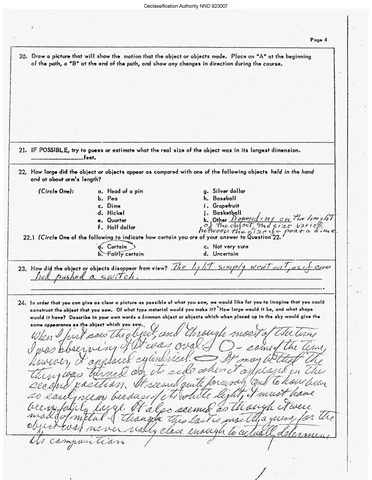 Declassification Authority NND 923007
Page 4
20. Draw a picture that will show the motion that the object or objects made. Place an "A" at the beginning
of the path, a "B" at the end of the path, and show any changes in direction during the course.
21. IF POSSIBLE, try to guess or estimate what the real size of the object was in its longest dimension.
feet.
22. How large did the object or objects appear as compared with one of the following objects held in the hand
and at about arm's length?
(Circle One): a. Head of a pin g. Silver dollar
b. Pea h. Baseball
c. Dime i. Grapefruit
d. Nickel j. Basketball
e. Quarter k. Other Depending on the height
f. Half dollar of the object, the size varied
between the size of a pea + a dime.
22.1 (Circle One of the following to indicate how certain you are of your answer to Question 22.
a. Certain c. Not very sure
b. Fairly certain d. Uncertain
23. How did the object or objects disappear from view? The light simply went out, as if one
had pushed a switch.
24. In order that you can give as clear a picture as possible of what you saw, we would like for you to imagine that you could
construct the object that you saw. Of what type material would you make it? How large would it be, and what shape
would it have? Describe in your own words a common object or objects which when placed up in the sky would give the
same appearance as the object which you saw.
When I first saw the light and through most of the time
I was observing it it was oval - some of the time,
however, it appeared cylindrical. It may be that the
thing was turned on its side when it appeared in the
second position. It seemed quite far away, and to have been
so easily seen because of its white light, it must have
been fairly large. It also seemed as though it were
made of metal - though this last is more than a guess, for the
object was never really close enough to actually determine
its composition